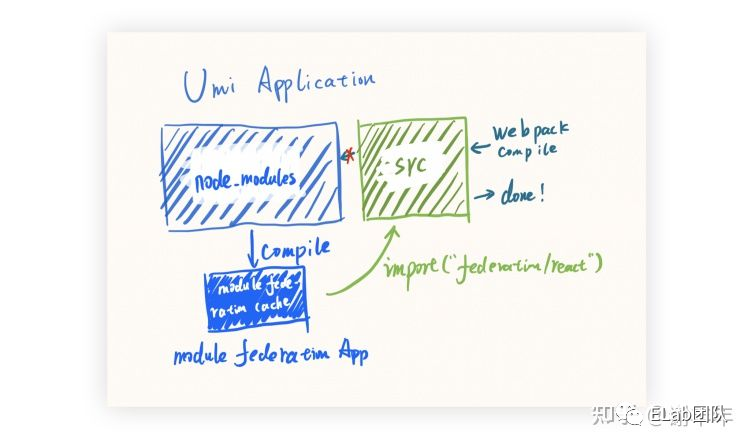 Umi Application
node_modules
src
webpack
compile
done!
compile
module fede-
ration cache
import("federation/react")
module federation App
ELab团队